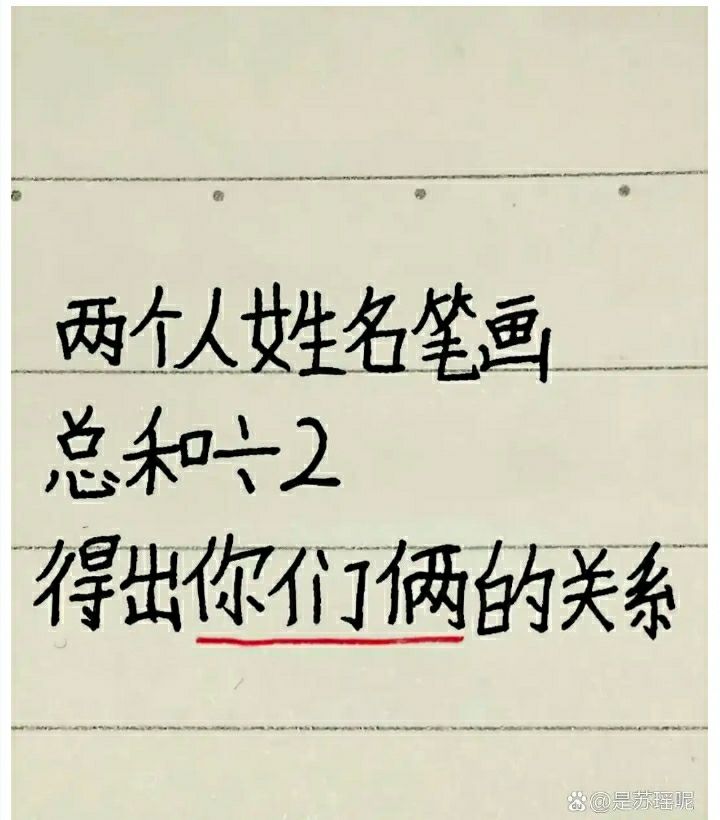 两个人姓名笔画
总和÷2
得出你们俩的关系
@是苏瑶呢